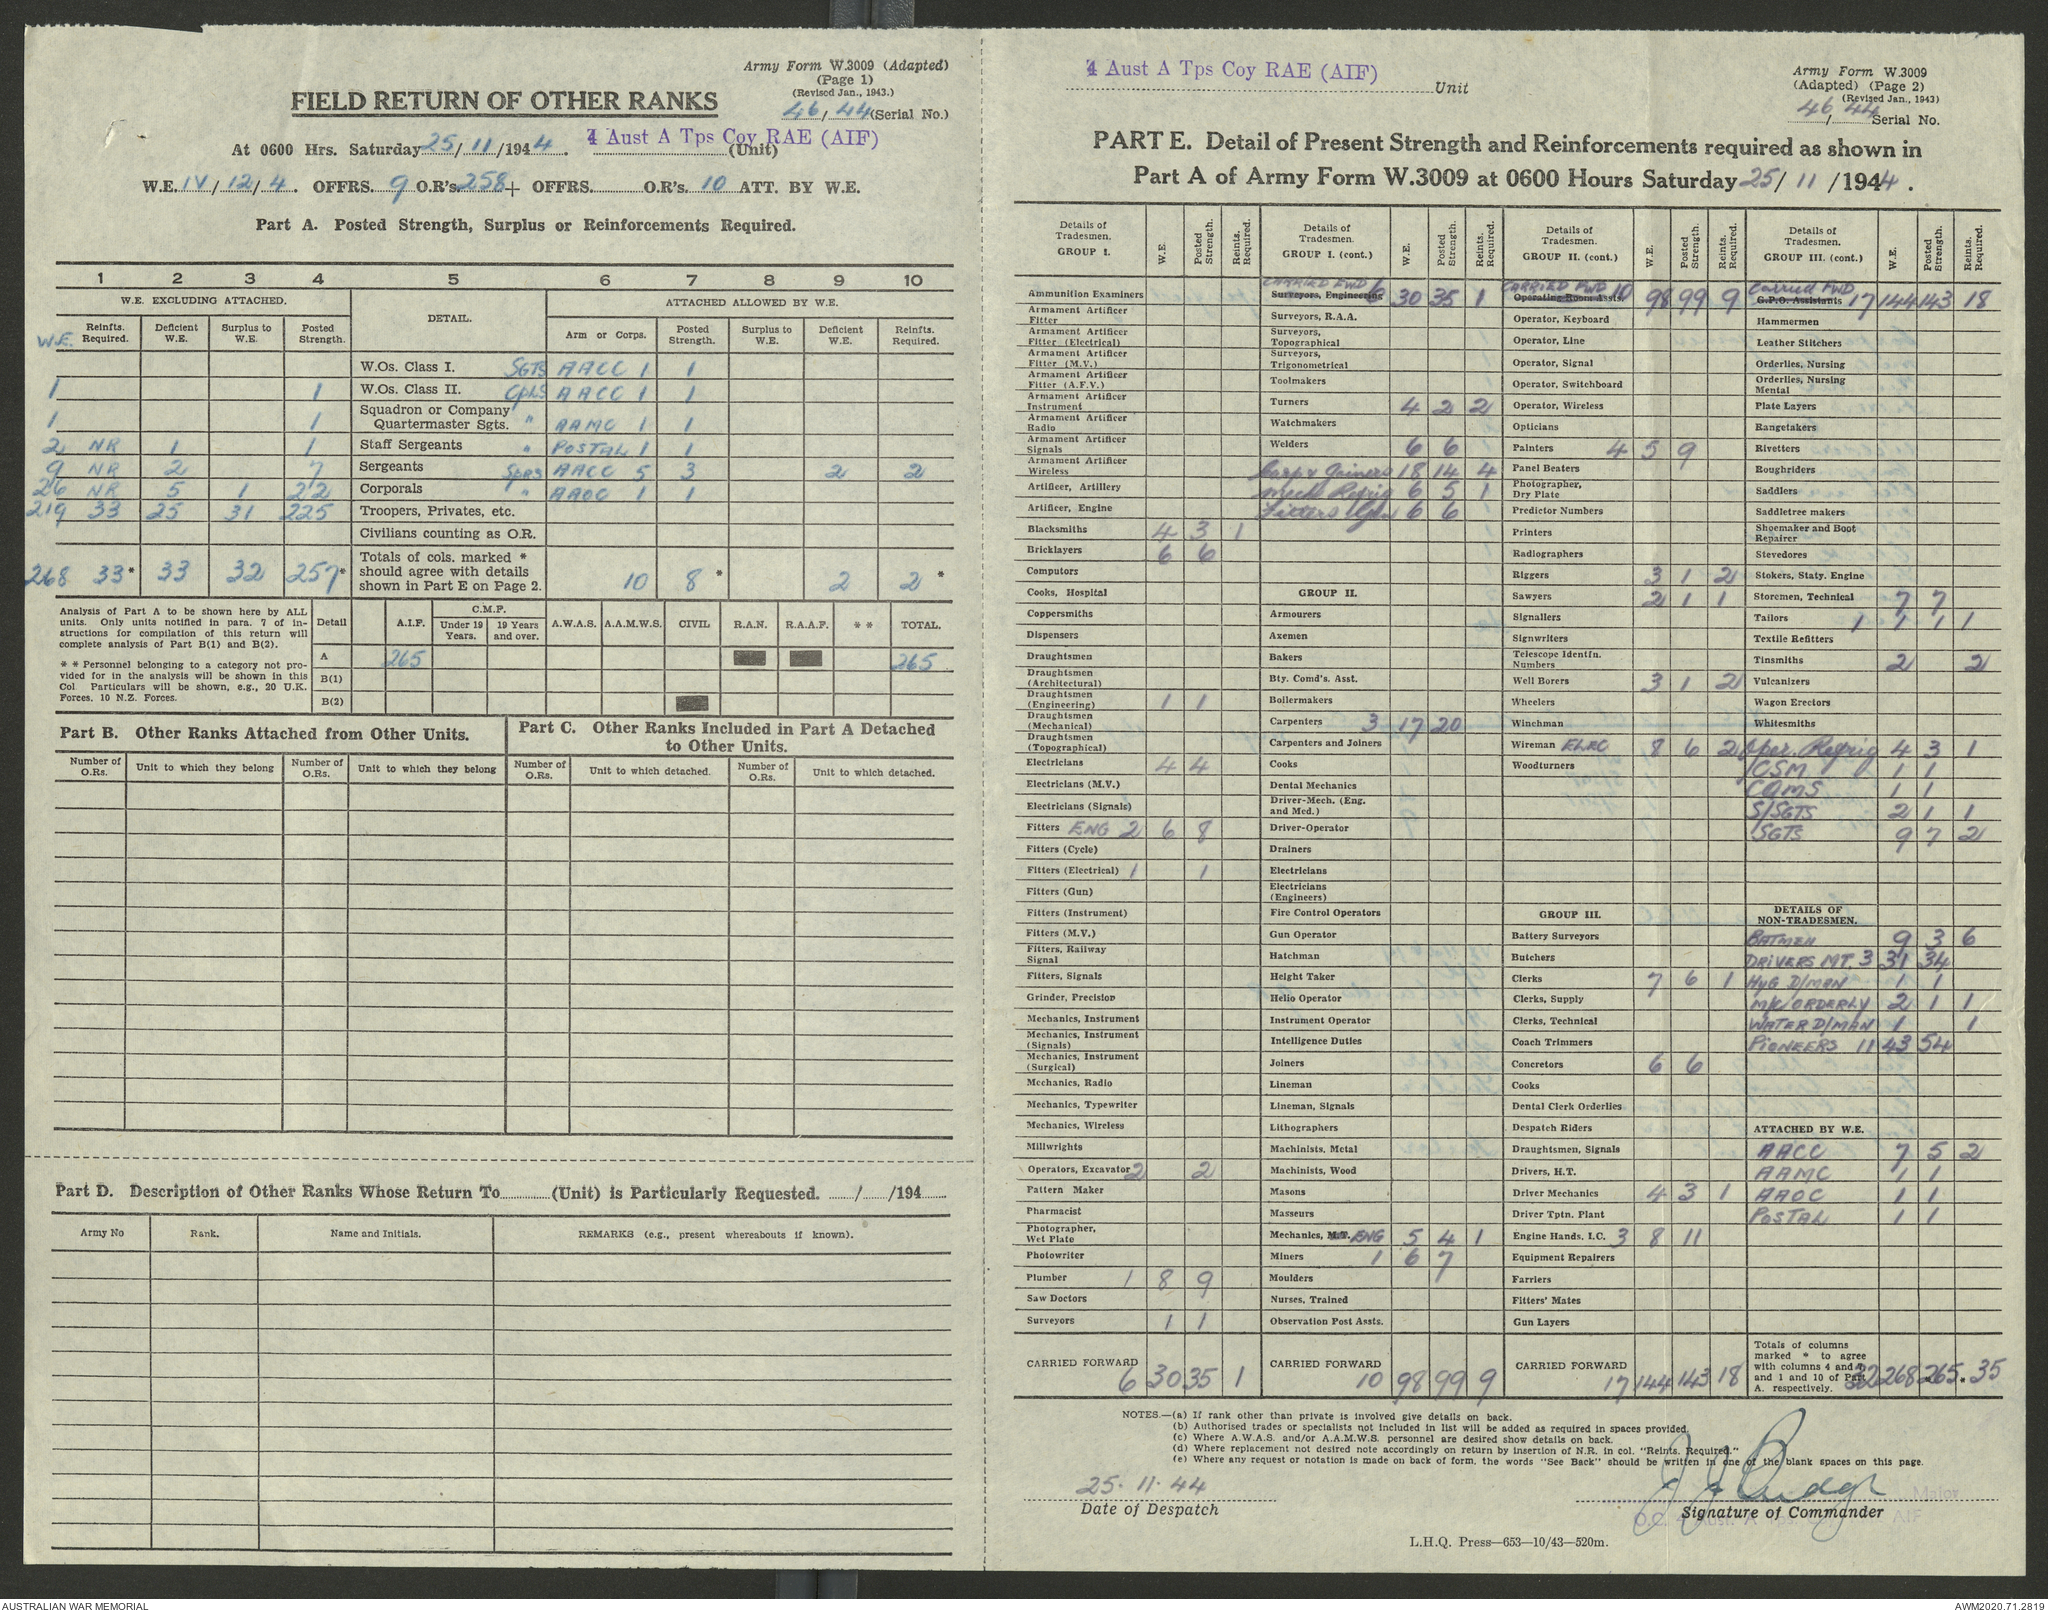 Army Form W.3009 (Adapted)
(Page 1)
(Revised Jan., 1943.)
FIELD RETURN OF OTHER RANKS
46/44 (Serial No.)
At 0600 Hrs. Saturday 25/11/1944. 4 Aust A Tps Coy RAE (AIF) (Unit)
W.E. IV/12/4. OFFRS. 9 O.R's. 258 + OFFRS. O.R's. 10 ATT. BY W.E.
Part A. Posted Strength, Surplus or Reinforcements Required.
1 2 3 4 5 6 7 8 9 10
W.E. EXCLUDING ATTACHED. DETAIL. ATTACHED ALLOWED BY W.E.
W.E. Reinfts. Required. Deficient W.E. Surplus to W.E. Posted Strength. Arm or Corps. Posted Strength. Surplus to W.E. Deficient W.E. Reinfts. Required.
W.Os. Class I. SGTS AACC 1 1
1 1 W.Os. Class II. CPLS AACC 1 1
1 1 Squadron or Company Quartermaster Sgts. " AAMC 1 1
2 NR 1 1 Staff Sergeants " POSTAL 1 1
9 NR 2 7 Sergeants SPRS AACC 5 3 2 2
26 NR 5 1 22 Corporals " AAOC 1 1
219 33 25 31 225 Troopers, Privates, etc.
Civilians counting as O.R.
268 33* 33 32 257* Totals of cols. marked * should agree with details shown in Part E on Page 2. 10 8* 2 2*
Analysis of Part A to be shown here by ALL units. Only units notified in para. 7 of instructions for compilation of this return will complete analysis of Part B(1) and B(2).
* * Personnel belonging to a category not provided for in the analysis will be shown in this Col. Particulars will be shown, e.g., 20 U.K. Forces, 10 N.Z. Forces.
Detail A.I.F. C.M.F. Under 19 Years. 19 Years and over. A.W.A.S. A.A.M.W.S. CIVIL R.A.N. R.A.A.F. * * TOTAL.
A 265 265
B(1)
B(2)
Part B. Other Ranks Attached from Other Units.
Part C. Other Ranks Included in Part A Detached to Other Units.
Number of O.Rs. Unit to which they belong Number of O.Rs. Unit to which they belong Number of O.Rs. Unit to which detached. Number of O.Rs. Unit to which detached.
Part D. Description of Other Ranks Whose Return To (Unit) is Particularly Requested. / /194
Army No Rank. Name and Initials. REMARKS (e.g., present whereabouts if known).
4 Aust A Tps Coy RAE (AIF) Unit
Army Form W.3009
(Adapted) (Page 2)
(Revised Jan., 1943)
46/44 Serial No.
PART E. Detail of Present Strength and Reinforcements required as shown in
Part A of Army Form W.3009 at 0600 Hours Saturday 25/11/1944.
Details of Tradesmen. GROUP I. W.E. Posted Strength. Reints. Required.
Ammunition Examiners
Armament Artificer Fitter
Armament Artificer Fitter (Electrical)
Armament Artificer Fitter (M.V.)
Armament Artificer Fitter (A.F.V.)
Armament Artificer Instrument
Armament Artificer Radio
Armament Artificer Signals
Armament Artificer Wireless
Artificer, Artillery
Artificer, Engine
Blacksmiths 4 3 1
Bricklayers 6 6
Computors
Cooks, Hospital
Coppersmiths
Dispensers
Draughtsmen
Draughtsmen (Architectural)
Draughtsmen (Engineering) 1 1
Draughtsmen (Mechanical)
Draughtsmen (Topographical)
Electricians 4 4
Electricians (M.V.)
Electricians (Signals)
Fitters ENG 2 6 8
Fitters (Cycle)
Fitters (Electrical) 1 1
Fitters (Gun)
Fitters (Instrument)
Fitters (M.V.)
Fitters, Railway Signal
Fitters, Signals
Grinder, Precision
Mechanics, Instrument
Mechanics, Instrument (Signals)
Mechanics, Instrument (Surgical)
Mechanics, Radio
Mechanics, Typewriter
Mechanics, Wireless
Millwrights
Operators, Excavator 2 2
Pattern Maker
Pharmacist
Photographer, Wet Plate
Photowriter
Plumber 1 8 9
Saw Doctors
Surveyors 1 1
CARRIED FORWARD 6 30 35 1
Details of Tradesmen. GROUP I. (cont.) W.E. Posted Strength. Reints. Required.
CARRIED FWD 6 30 35 1
Surveyors, Engineering
Surveyors, R.A.A.
Surveyors, Topographical
Surveyors, Trigonometrical
Toolmakers
Turners 4 2 2
Watchmakers
Welders 6 6
Carp & Joiners 18 14 4
Mech Refrig 6 5 1
Fitters Gen 6 6
GROUP II.
Armourers
Axemen
Bakers
Bty. Comd's. Asst.
Boilermakers
Carpenters 3 17 20
Carpenters and Joiners
Cooks
Dental Mechanics
Driver-Mech. (Eng. and Med.)
Driver-Operator
Drainers
Electricians
Electricians (Engineers)
Fire Control Operators
Gun Operator
Hatchman
Height Taker
Helio Operator
Instrument Operator
Intelligence Duties
Joiners
Lineman
Lineman, Signals
Lithographers
Machinists, Metal
Machinists, Wood
Masons
Masseurs
Mechanics, M.T. ENG 5 4 1
Miners 1 6 7
Moulders
Nurses, Trained
Observation Post Assts.
CARRIED FORWARD 10 98 99 9
Details of Tradesmen. GROUP II. (cont.) W.E. Posted Strength. Reints. Required.
CARRIED FWD 10 98 99 9
Operating Room Assts.
Operator, Keyboard
Operator, Line
Operator, Signal
Operator, Switchboard
Operator, Wireless
Opticians
Painters 4 5 9
Panel Beaters
Photographer, Dry Plate
Predictor Numbers
Printers
Radiographers
Riggers 3 1 2
Sawyers 2 1 1
Signallers
Signwriters
Telescope Identfn. Numbers
Well Borers 3 1 2
Wheelers
Winchman
Wireman ELEC 8 6 2
Woodturners
GROUP III.
Battery Surveyors
Butchers
Clerks 7 6 1
Clerks, Supply
Clerks, Technical
Coach Trimmers
Concretors 6 6
Cooks
Dental Clerk Orderlies
Despatch Riders
Draughtsmen, Signals
Drivers, H.T.
Driver Mechanics 4 3 1
Driver Tptn. Plant
Engine Hands, I.C. 3 8 11
Equipment Repairers
Farriers
Fitters' Mates
Gun Layers
CARRIED FORWARD 17 144 143 18
Details of Tradesmen. GROUP III. (cont.) W.E. Posted Strength. Reints. Required.
Carried FWD 17 144 143 18
G.P.O. Assistants
Hammermen
Leather Stitchers
Orderlies, Nursing
Orderlies, Nursing Mental
Plate Layers
Rangetakers
Rivetters
Roughriders
Saddlers
Saddletree makers
Shoemaker and Boot Repairer
Stevedores
Stokers, Staty. Engine
Storemen, Technical 7 7
Tailors 1 1 1 1
Textile Refitters
Tinsmiths 2 2
Vulcanizers
Wagon Erectors
Whitesmiths
Oper. Refrig 4 3 1
CSM 1 1
CQMS 1 1
S/SGTS 2 1 1
SGTS 9 7 2
DETAILS OF NON-TRADESMEN.
BATMEN 9 3 6
DRIVERS MT. 3 31 34
HYG D/MAN 1 1
M/C ORDERLY 2 1 1
WATER D/MAN 1 1
PIONEERS 11 43 54
ATTACHED BY W.E.
AACC 7 5 2
AAMC 1 1
AAOC 1 1
POSTAL 1 1
Totals of columns marked * to agree with columns 4 and 7 and 1 and 10 of Part A. respectively. 32 268 265* 35
NOTES.—(a) If rank other than private is involved give details on back.
(b) Authorised trades or specialists not included in list will be added as required in spaces provided.
(c) Where A.W.A.S. and/or A.A.M.W.S. personnel are desired show details on back.
(d) Where replacement not desired note accordingly on return by insertion of N.R. in col. "Reints. Required."
(e) Where any request or notation is made on back of form, the words "See Back" should be written in one of the blank spaces on this page.
25.11.44
Date of Despatch
Major
Signature of Commander
O.C. 4 Aust. A Tps. AIF
L.H.Q. Press—653—10/43—520m.
AUSTRALIAN WAR MEMORIAL
AWM2020.71.2819